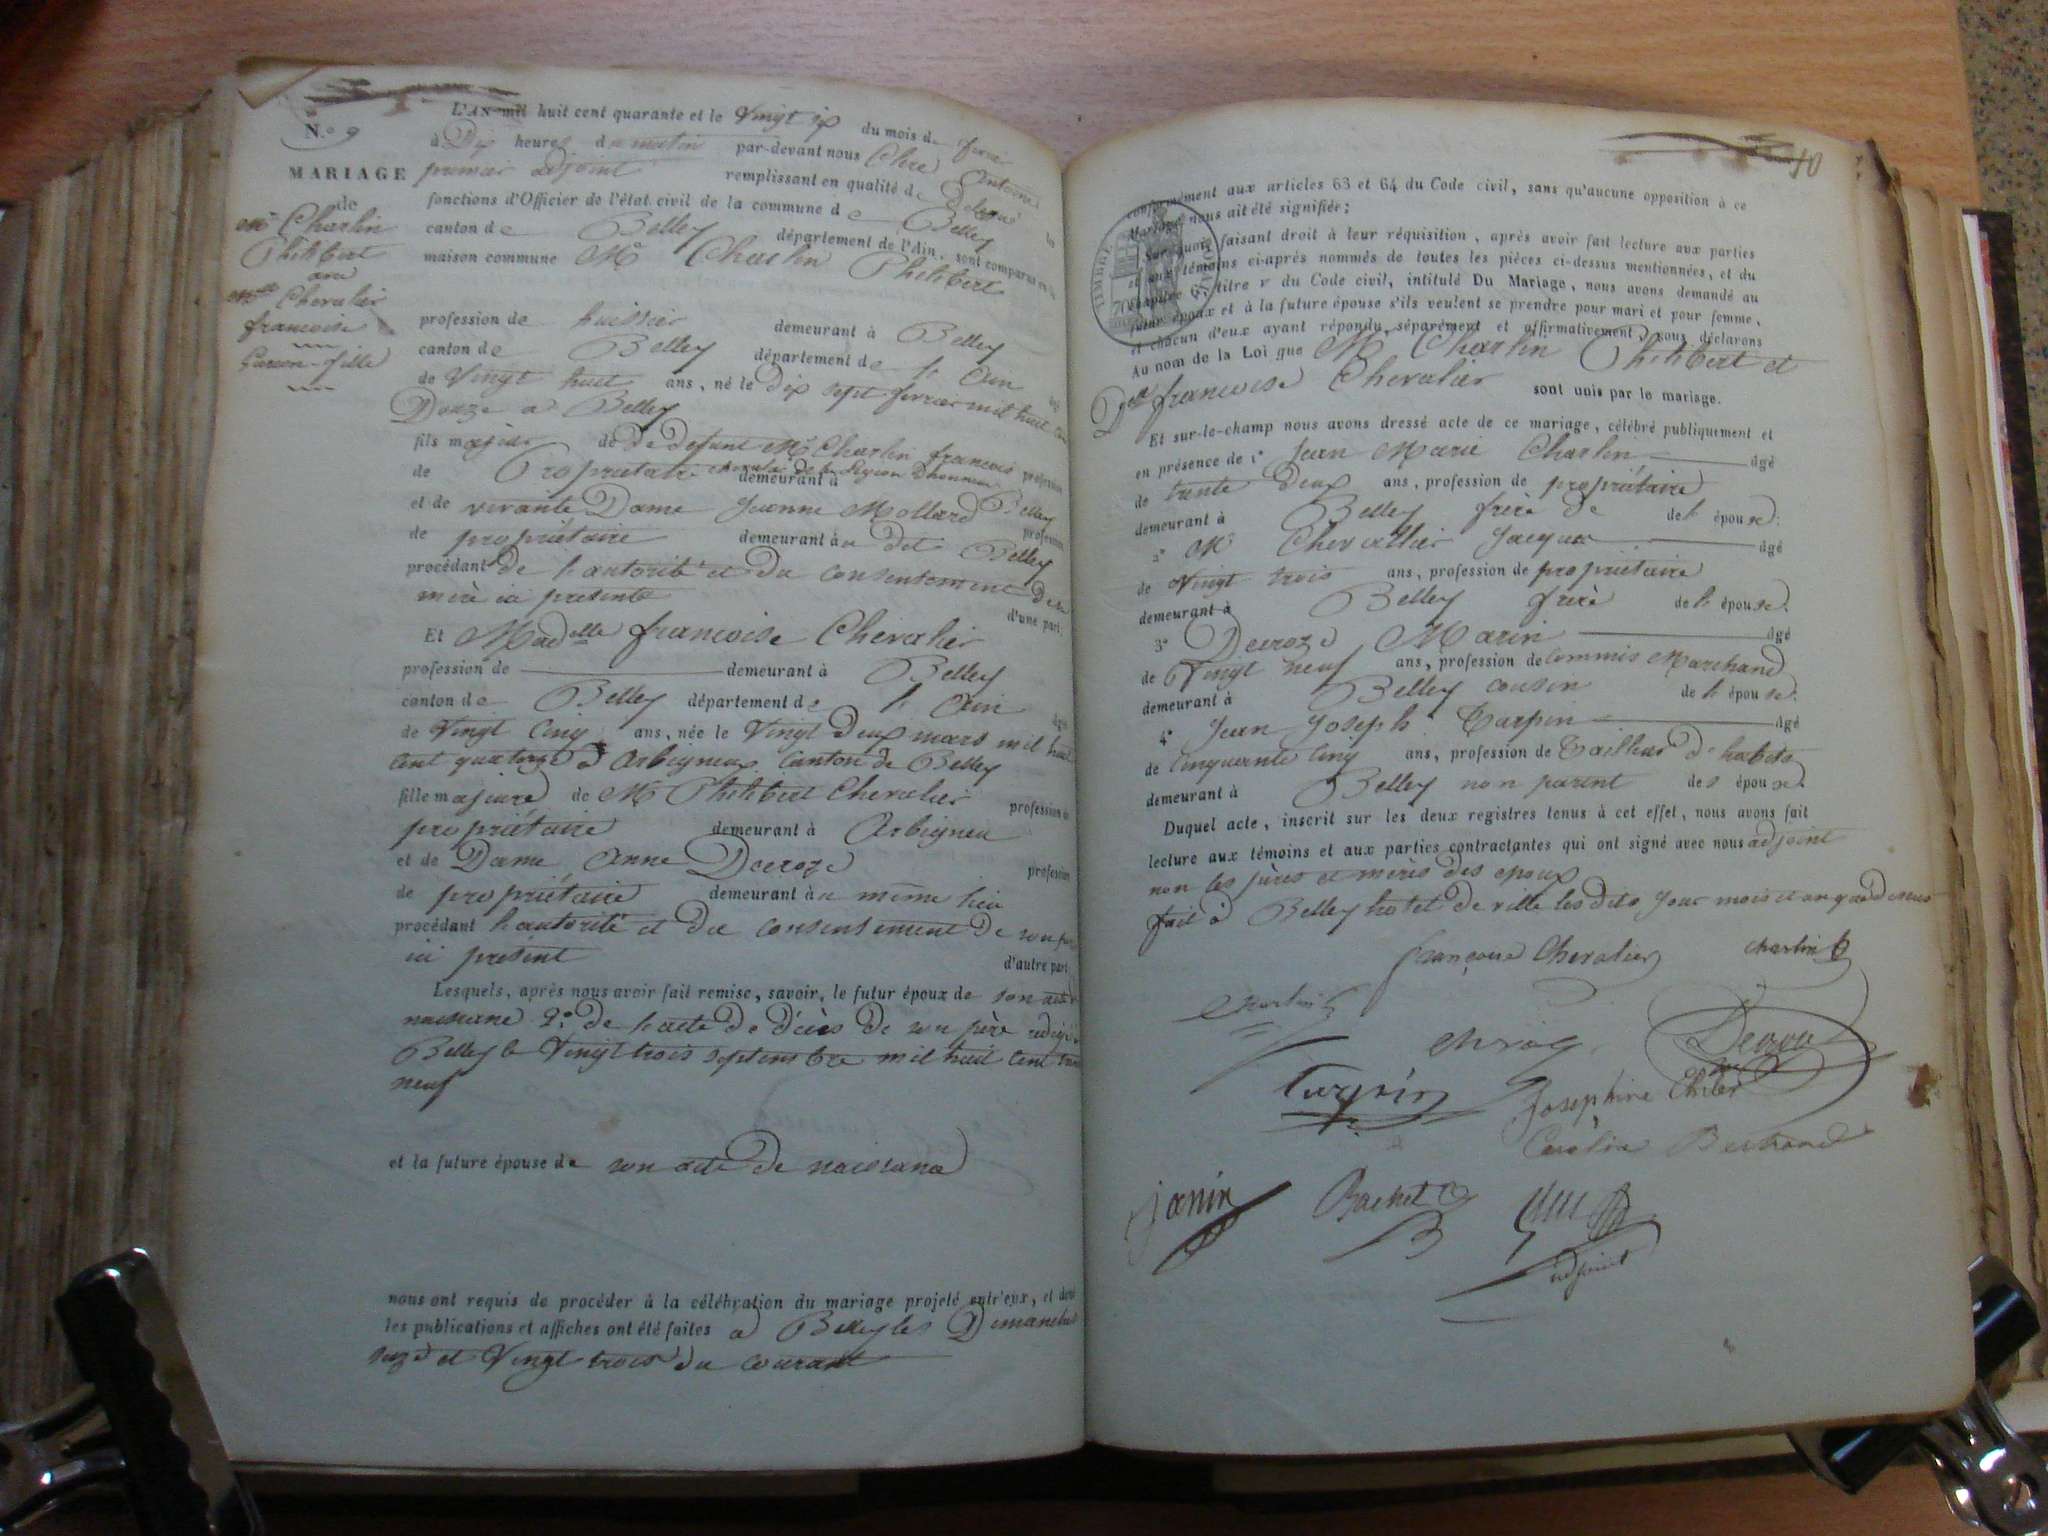 N.o 9
MARIAGE
de
Mr Charlin
Philibert
ave
Melle Chevalier
francoise
Garcon-fille
L'AN mil huit cent quarante et le Vingt six du mois de fevrier
à Dix heures du matin par-devant nous Antoine
premier adjoint remplissant en qualité de Délégué les
fonctions d'Officier de l'état civil de la commune de Belley
canton de Belley département de l'Ain, sont comparus en la
maison commune Mr Charlin Philibert
profession de huissier demeurant à Belley
canton de Belley département de l'Ain âgé
de Vingt huit ans, né le Dix sept fevrier mil huit cent
Douze a Belley
fils majeur de De defunt Mr Charlin francois profession
de Propriétaire chevalier de la Légion Dhonneur demeurant à Belley
et de vivante Dame Jeanne Mollard profession
de propriétaire demeurant au dit Belley
procédant de l'autorité et du consentement de sa
mère ici présente d'une part;
Et Madelle francoise Chevalier
profession de demeurant à Belley
canton de Belley département de l'Ain âgée
de Vingt Cinq ans, née le Vingt Deux mars mil huit
Cent quatorze à Arbigneux Canton de Belley
fille majeure de Mr Philibert Chevalier profession de
propriétaire demeurant à Arbigneu
et de Dame Anne Decroze profession
de propriétaire demeurant au même lieu
procédant l'autorité et du consentement de son père
ici présent d'autre part;
Lesquels, après nous avoir fait remise, savoir, le futur époux de son acte de
naissance 2o De l'acte De décès De son père redigé à
Belley le Vingt trois septembre mil huit Cent trente
neuf
et la future épouse de son acte De naissance
nous ont requis de procéder à la célébration du mariage projeté entr'eux, et dont
les publications et affiches ont été faites à Belley les Dimanches
seize et Vingt trois du courant
10
conformément aux articles 63 et 64 du Code civil, sans qu'aucune opposition à ce
Mariage nous ait été signifiée;
Sur quoi, faisant droit à leur réquisition, après avoir fait lecture aux parties
et aux témoins ci-après nommés de toutes les pièces ci-dessus mentionnées, et du
chapitre 6, titre v du Code civil, intitulé Du Mariage, nous avons demandé au
futur époux et à la future épouse s'ils veulent se prendre pour mari et pour femme,
et chacun d'eux ayant répondu séparément et affirmativement, nous déclarons
TIMBRE ROYAL
Au nom de la Loi que Mr Charlin Philibert et
Delle francoise Chevalier sont unis par le mariage.
Et sur-le-champ nous avons dressé acte de ce mariage, célébré publiquement et
en présence de 1° Jean Marie Charlin âgé
de trente Deux ans, profession de propriétaire
demeurant à Belley frère de de l' épouse:
2° Mr Chevallier Jacques âgé
de Vingt trois ans, profession de propriétaire
demeurant à Belley frère de l' épouse.
3° Decroze Marin âgé
de Vingt neuf ans, profession de Commis Marchand
demeurant à Belley cousin de l' épouse.
4° Jean Joseph Turpin âgé
de Cinquante Cinq ans, profession de Tailleur D'habits
demeurant à Belley non parent des époux.
Duquel acte, inscrit sur les deux registres tenus à cet effet, nous avons fait
lecture aux témoins et aux parties contractantes qui ont signé avec nous adjoint
non les pères et mères des epoux
fait à Belley hotel De ville les dits jour mois et an que Dessus
françoise Chevalier charlin
Charlin
Turpin
Josephine
Bertrand
Janin Bachet
adjoint